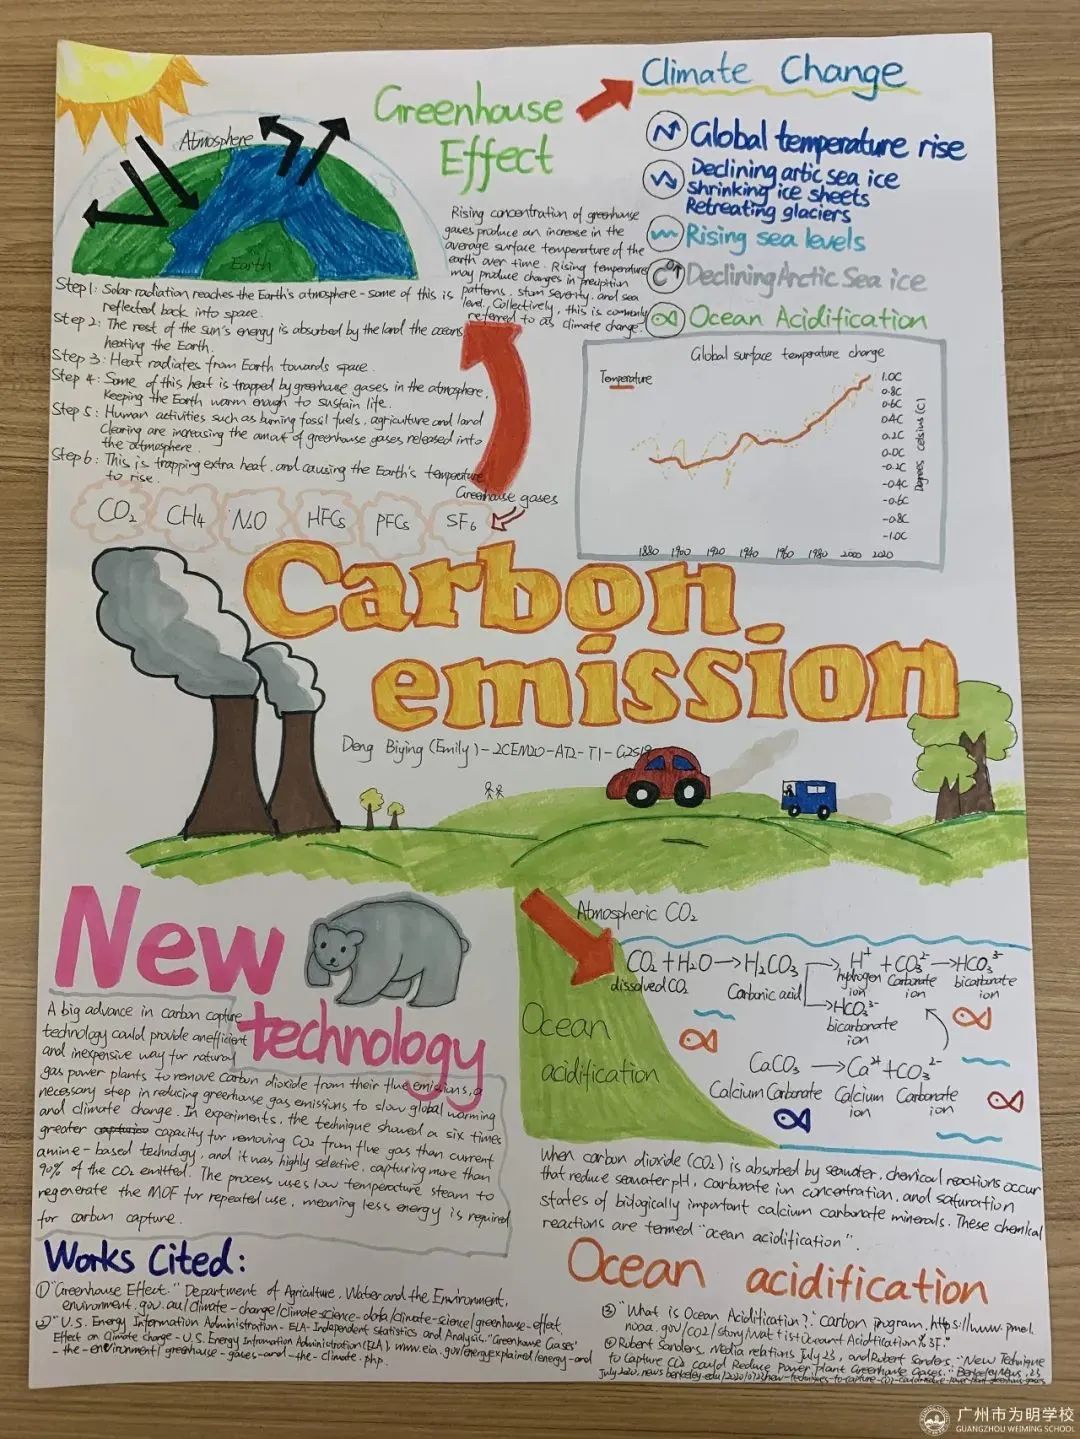 Atmosphere
Earth
Greenhouse
Effect
Rising concentration of greenhouse
gases produce an increase in the
average surface temperature of the
earth over time. Rising temperatures
may produce changes in
patterns, severity, and sea
level. Collectively, this is commonly
referred to as climate change.
Climate Change
Global temperature rise
Declining artic sea ice
shrinking ice sheets
Retreating glaciers
Rising sea levels
Declining Arctic Sea ice
Ocean Acidification
Step 1: Solar radiation reaches the Earth's atmosphere - some of this is
reflected back into space.
Step 2: The rest of the sun's energy is absorbed by the land the oceans
heating the Earth.
Step 3: Heat radiates from Earth towards space.
Step 4: Some of this heat is trapped by greenhouse gases in the atmosphere,
Keeping the Earth warm enough to sustain life.
Step 5: Human activities such as burning fossil fuels, agriculture and land
clearing are increasing the amout of greenhouse gases released into
the atmosphere.
Step 6: This is trapping extra heat, and causing the Earth's temperature
to rise.
Greenhouse gases
CO₂ CH₄ N₂O HFCs PFCs SF₆
Global surface temperature change
Temperature
1.0C
0.8C
0.6C
0.4C
0.2C
0.0C
-0.2C
-0.4C
-0.6C
-0.8C
-1.0C
Degrees celsius (C)
1880 1900 1920 1940 1960 1980 2000 2020
Carbon
emission
Deng Biying (Emily) - 2CEM20-AT2-T1-G2S19
New
technology
A big advance in carbon capture
technology could provide an efficient
and inexpensive way for natural
gas power plants to remove carbon dioxide from their flue emissions, a
necessary step in reducing greenhouse gas emissions to slow global warming
and climate change. In experiments, the technique showed a six times
greater capacity for removing CO₂ from flue gas than current
amine-based technology, and it was highly selective, capturing more than
90% of the CO₂ emitted. The process uses low temperature steam to
regenerate the MOF for repeated use, meaning less energy is required
for carbon capture.
Atmospheric CO₂
CO₂ + H₂O → H₂CO₃ → H⁺ + CO₃²⁻ → HCO₃³⁻
dissolved CO₂ Carbonic acid hydrogen ion Carbonate ion bicarbonate ion
→ HCO₃³⁻
bicarbonate
ion
Ocean
acidification
CaCO₃ → Ca²⁺ + CO₃²⁻
Calcium Carbonate Calcium ion Carbonate ion
When carbon dioxide (CO₂) is absorbed by seawater, chemical reactions occur
that reduce seawater pH, carbonate ion concentration, and saturation
states of biologically important calcium carbonate minerals. These chemical
reactions are termed "ocean acidification".
Ocean acidification
Works Cited:
① "Greenhouse Effect." Department of Agriculture, Water and the Environment,
environment.gov.au/climate-change/climate-science-data/climate-science/greenhouse-effect.
② "U.S. Energy Information Administration - EIA - Independent Statistics and Analysis." Greenhouse Gases'
Effect on Climate change - U.S. Energy Information Administration (EIA), www.eia.gov/energyexplained/energy-and
-the-environment/greenhouse-gases-and-the-climate.php.
③ "What is Ocean Acidification?" Carbon program, https://www.pmel.
noaa.gov/CO2/story/
④ Robert Sanders, Media relations July 23, and Robert Sanders. "New Technique
to Capture CO₂ could Reduce Power plant Greenhouse Gases." Berkeley News, 23
July 2020, news.berkeley.edu/2020/07/23/
广州市为明学校
GUANGZHOU WEIMING SCHOOL